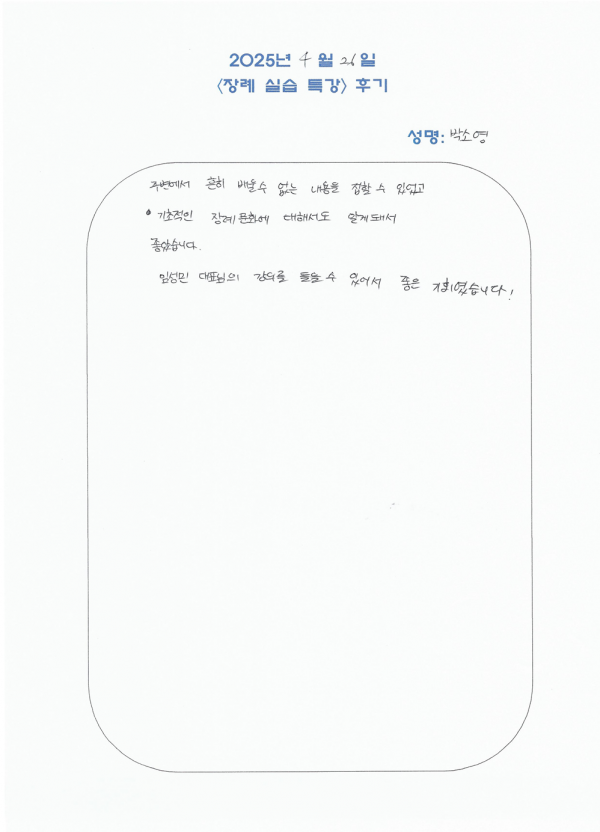 2025년 4 월 26 일
<장례 실습 특강> 후기
성명: 박소영
주변에서 흔히 배울수 없는 내용을 접할 수 있었고
기초적인 장례문화에 대해서도 알게돼서
좋았습니다.
임성민 대표님의 강의를 들을 수 있어서 좋은 기회였습니다!